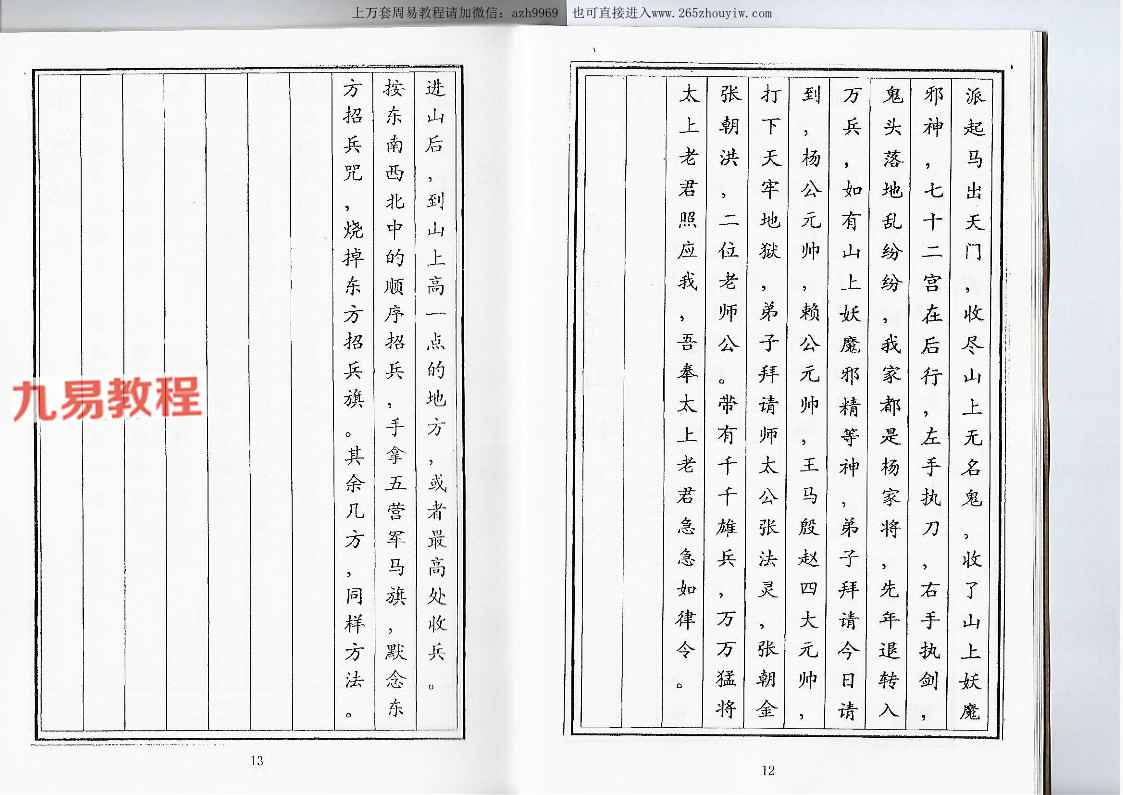 上万套周易教程请加微信：azh9969 也可直接进入www.265zhouyiw.com
派起马出天门，收尽山上无名鬼，收了山上妖魔
邪神，七十二宫在后行，左手执刀，右手执剑，
鬼头落地乱纷纷，我家都是杨家将，先年退转入
万兵，如有山上妖魔邪精等神，弟子拜请今日请
到，杨公元帅，赖公元帅，王马殷赵四大元帅，
打下天牢地狱，弟子拜请师太公张法灵，张朝金
张朝洪，二位老师公。带有千千雄兵，万万猛将
太上老君照应我，吾奉太上老君急急如律令。
12
进山后，到山上高一点的地方，或者最高处收兵。
按东南西北中的顺序招兵，手拿五营军马旗，默念东
方招兵咒，烧掉东方招兵旗。其余几方，同样方法。
13
九易教程